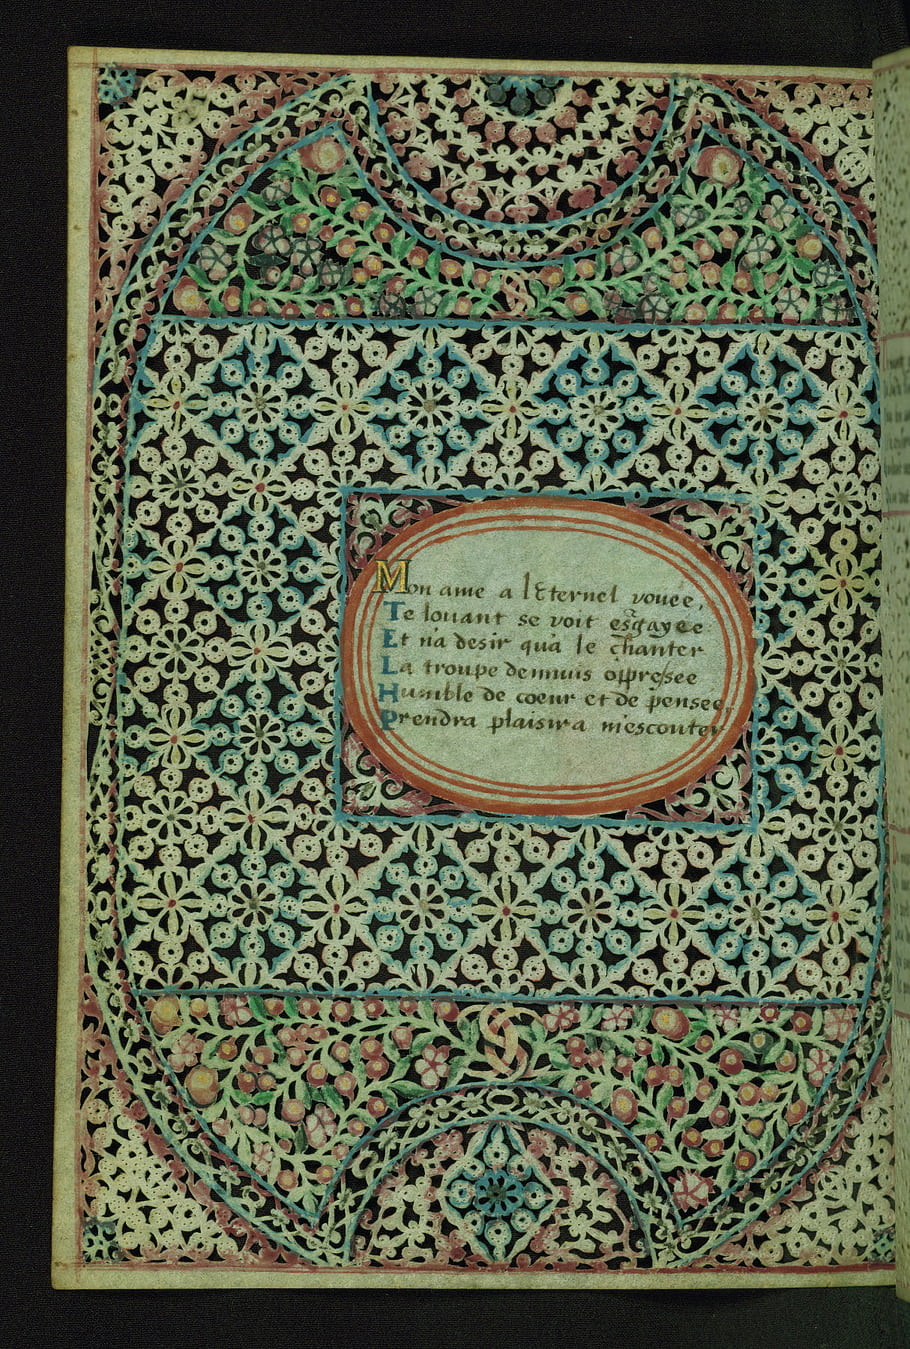 Mon ame a lEternel vouee,
Te louant se voit esgayee
Et n'a desir qu'a le chanter
La troupe dennuis oppresee
Humble de coeur et de pensee,
Prendra plaisir a m'escouter